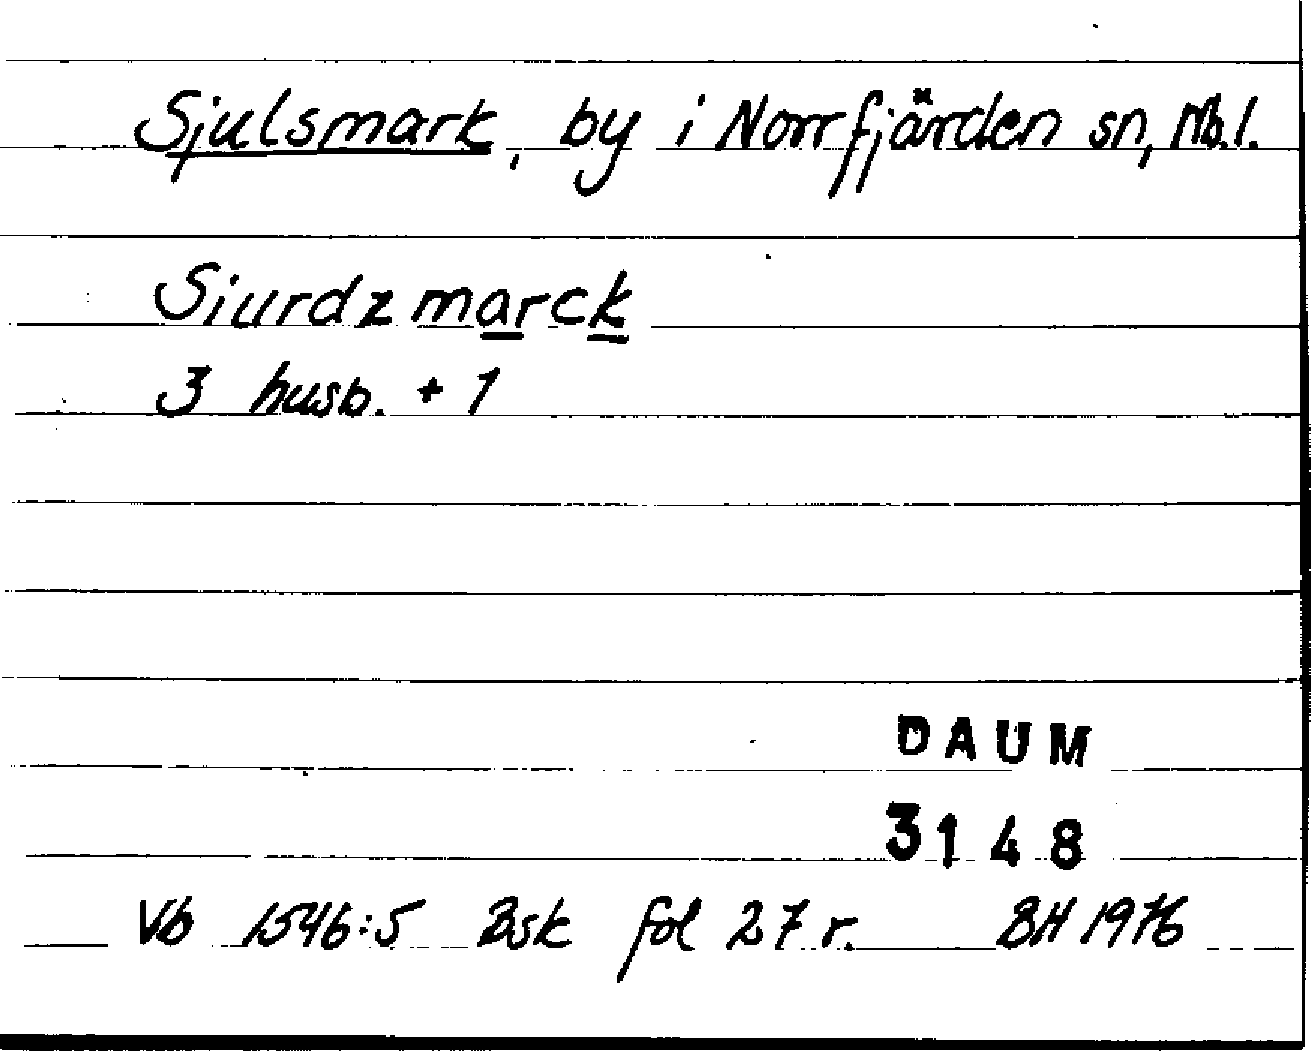 Sjulsmark, by i Norrfjärden sn, Nb.l.
Siurdzmarck
3 husb. + 1
DAUM
3148
Vb 1546:5 Bsk fol 27 r. BH 1976